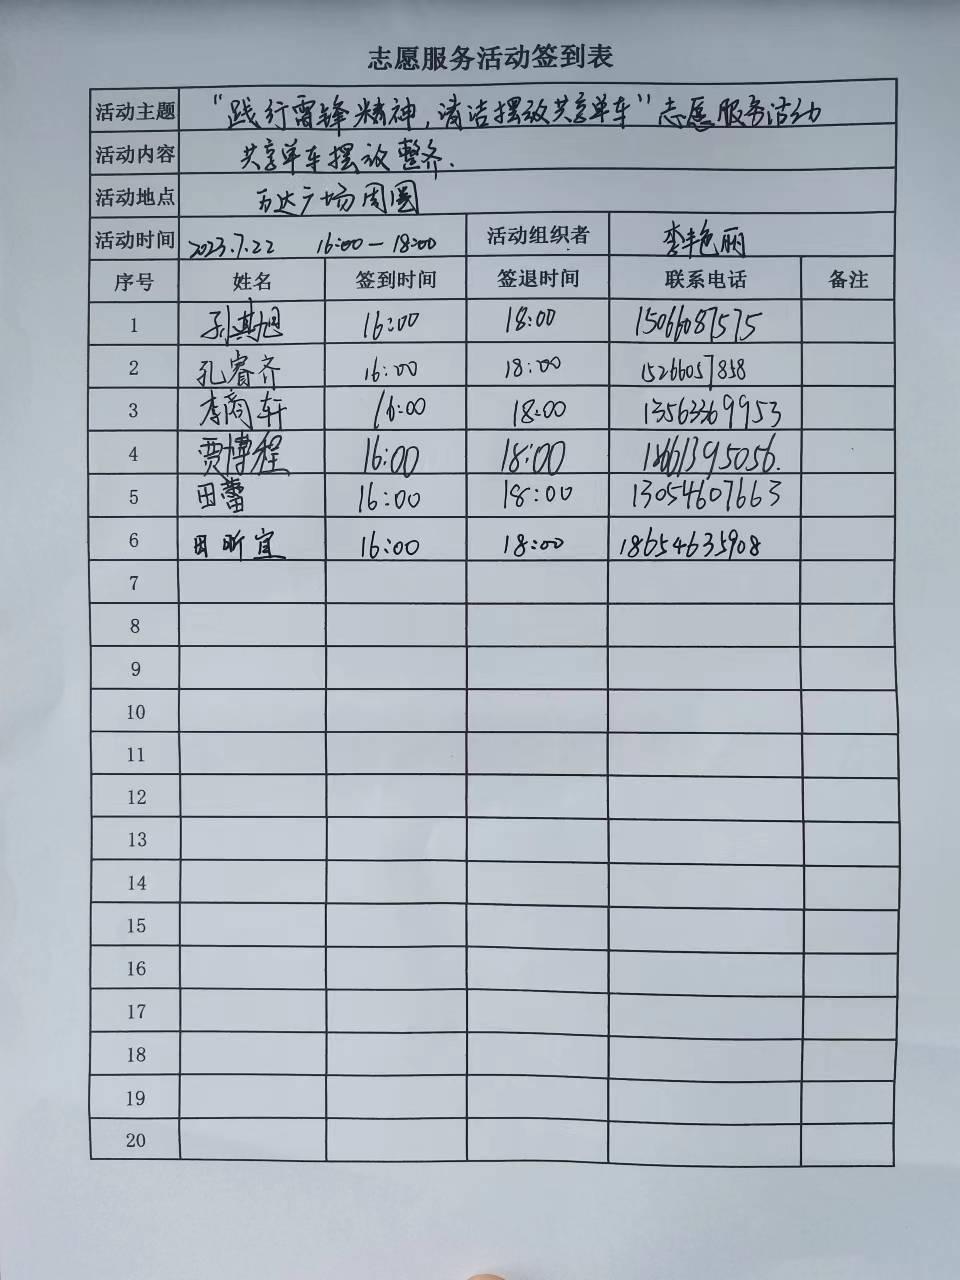 志愿服务活动签到表
活动主题 “践行雷锋精神，清洁摆放共享单车”志愿服务活动
活动内容 共享单车摆放整齐.
活动地点 万达广场周围
活动时间 2023.7.22 16:00-18:00 活动组织者 李艳丽
序号 姓名 签到时间 签退时间 联系电话 备注
1 孙其旭 16:00 18:00 15066087575
2 孔睿齐 16:00 18:00 15266057858
3 李商轩 16:00 18:00 13563369953
4 贾博程 16:00 18:00
5 田蕾 16:00 18:00 13054607663
6 田昕宜 16:00 18:00 18654635908
7
8
9
10
11
12
13
14
15
16
17
18
19
20